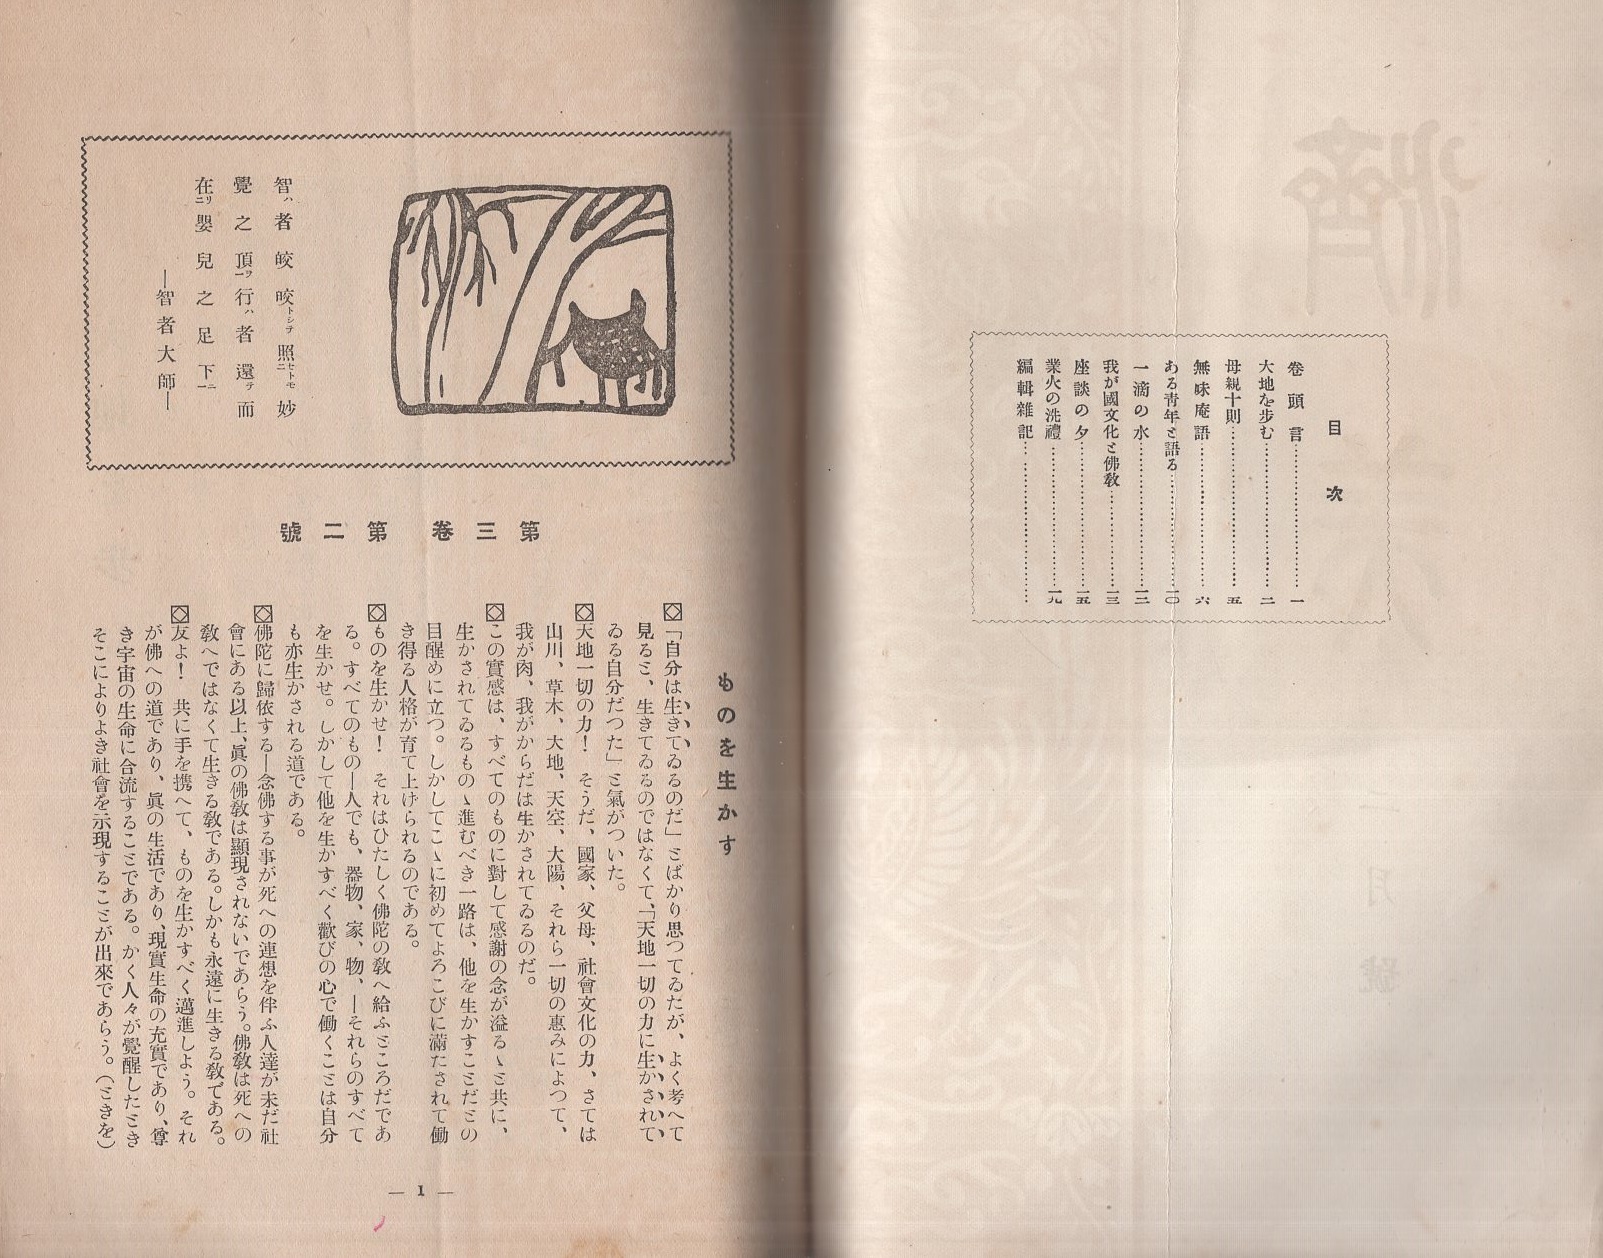 目次
卷頭言…………一
大地を歩む…………二
母親十則…………五
無味庵語…………六
ある青年と語る…………一〇
一滴の水…………一二
我が國文化と佛教…………一三
座談の夕…………一五
業火の洗禮…………一九
編輯雜記…………
智ハ者皎皎トシテ照セトモ二妙
覺之頂ヲ一行ハ者還テ而
在リ二嬰兒之足下ニ一
―智者大師―
第三卷 第二號
ものを生かす
「自分は生きてゐるのだ」とばかり思つてゐたが、よく考へて
見ると、生きてゐるのではなくて、「天地一切の力に生かされて
ゐる自分だつた」と氣がついた。
天地一切の力! そうだ、國家、父母、社會文化の力、さては
山川、草木、大地、天空、大陽、それら一切の惠みによつて、
我が肉、我がからだは生かされてゐるのだ。
この實感は、すべてのものに對して感謝の念が溢るゝと共に、
生かされてゐるものゝ進むべき一路は、他を生かすことだとの
目醒めに立つ。しかしてこゝに初めてよろこびに滿たされて働
き得る人格が育て上げられるのである。
ものを生かせ! それはひたしく佛陀の敎へ給ふところだであ
る。すべてのもの―人でも、器物、家、物、―それらのすべて
を生かせ。しかして他を生かすべく歡びの心で働くことは自分
も亦生かされる道である。
佛陀に歸依する―念佛する事が死への連想を伴ふ人達が未だ社
會にある以上、眞の佛敎は顯現されないであらう。佛敎は死への
敎へではなくて生きる敎である。しかも永遠に生きる敎である。
友よ! 共に手を携へて、ものを生かすべく邁進しよう。それ
が佛への道であり、眞の生活であり、現實生命の充實であり、尊
き宇宙の生命に合流することである。かく人々が覺醒したとき
そこによりよき社會を示現することが出來であらう。(ときを)
― 1 ―